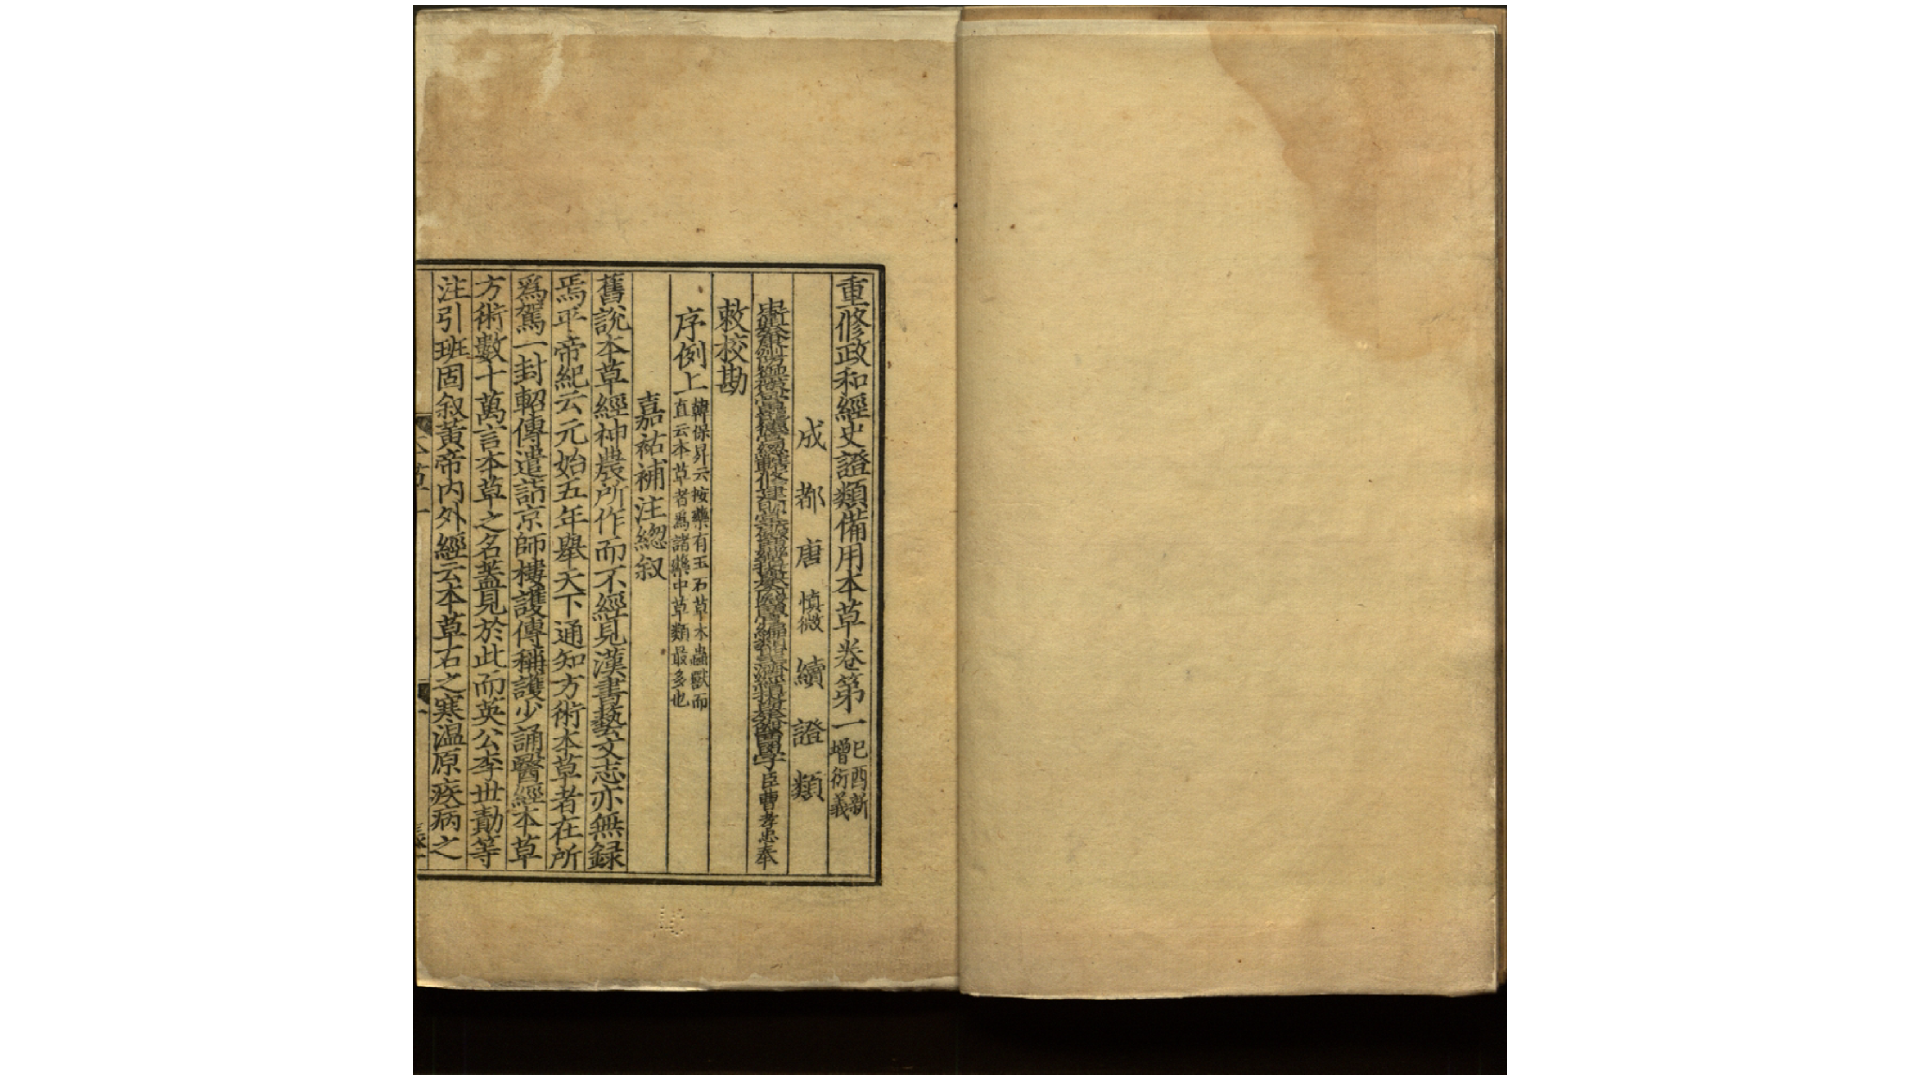 重修政和經史證類備用本草卷第一己酉新增衍義
成都唐慎微續證類
臣曹孝忠奉
敕校勘
序例上韓保昇云按藥有玉石草木蟲獸而直云本草者為諸藥中草類最多也
嘉祐補注緫叙
舊說本草經神農所作而不經見漢書藝文志亦無録
焉平帝紀云元始五年舉天下通知方術本草者在所
爲駕一封軺傳遣詣京師樓護傳稱護少誦醫經本草
方術數十萬言本草之名蓋見於此而英公李世勣等
注引班固叙黃帝内外經云本草石之寒温原疾病之